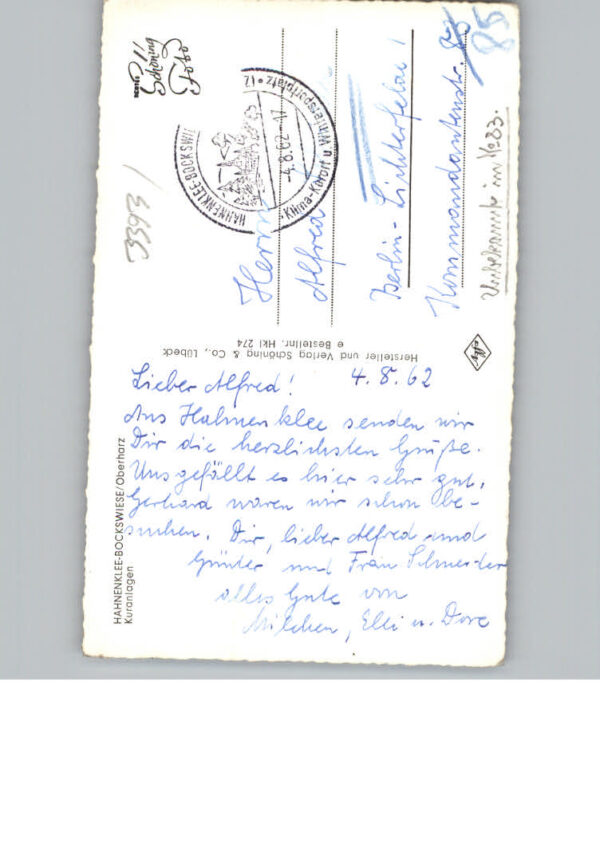 Schöning
Foto
HAHNENKLEE-BOCKSWIE
Klima-Kurort u. Wintersportplatz
-4.8.62-17
3393 /
85
Herrn
Alfred
Berlin-Lichterfelde!
Kommandantenstr. 83
Unbekannt in Nr 83.
Hersteller und Verlag Schöning & Co., Lübeck
e Bestellnr. Hkl 274
HAHNENKLEE-BOCKSWIESE/Oberharz
Kuranlagen
Lieber Alfred! 4. 8. 62
Aus Hahnenklee senden wir
Dir die herzlichsten Grüße.
Uns gefällt es hier sehr gut.
Gerhard waren wir schon be-
suchen. Dir, lieber Alfred und
Günter und Frau Schneider
alles Gute von
Milchen, Elli u. Dore